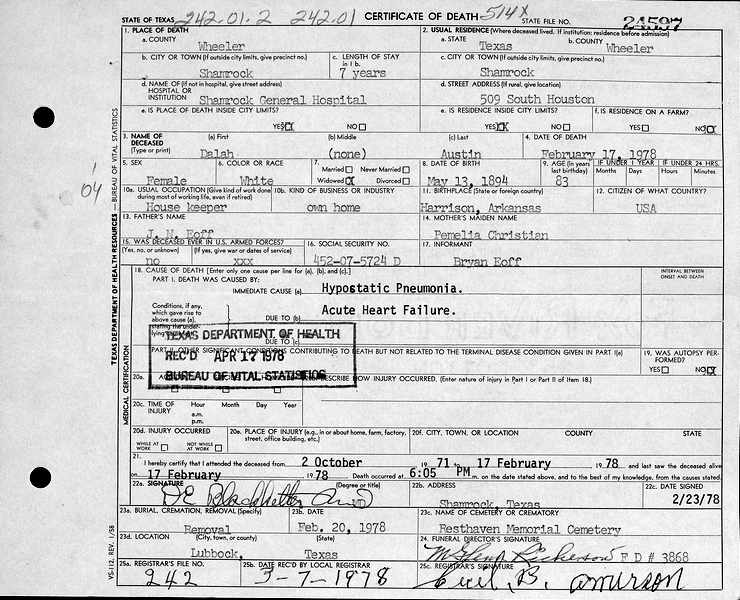 242.01.2 242.01 514X
STATE OF TEXAS CERTIFICATE OF DEATH STATE FILE NO. 24597
1. PLACE OF DEATH
a. COUNTY
Wheeler
2. USUAL RESIDENCE (Where deceased lived. If institution: residence before admission)
a. STATE
Texas
b. COUNTY
Wheeler
b. CITY OR TOWN (If outside city limits, give precinct no.)
Shamrock
c. LENGTH OF STAY in 1 b.
7 years
c. CITY OR TOWN (If outside city limits, give precinct no.)
Shamrock
d. NAME OF (If not in hospital, give street address) HOSPITAL OR INSTITUTION
Shamrock General Hospital
d. STREET ADDRESS (If rural, give location)
509 South Houston
e. IS PLACE OF DEATH INSIDE CITY LIMITS?
YES X NO
e. IS RESIDENCE INSIDE CITY LIMITS?
YES X NO
f. IS RESIDENCE ON A FARM?
YES NO X
3. NAME OF DECEASED (Type or print)
(a) First
Dalah
(b) Middle
(none)
(c) Last
Austin
4. DATE OF DEATH
February 17, 1978
5. SEX
Female
6. COLOR OR RACE
White
7. Married Never Married
Widowed X Divorced
8. DATE OF BIRTH
May 13, 1894
9. AGE (In years last birthday)
83
IF UNDER 1 YEAR
Months Days
IF UNDER 24 HRS.
Hours Min.
10a. USUAL OCCUPATION (Give kind of work done during most of working life, even if retired)
House keeper
10b. KIND OF BUSINESS OR INDUSTRY
own home
11. BIRTHPLACE (State or foreign country)
Harrison, Arkansas
12. CITIZEN OF WHAT COUNTRY?
USA
13. FATHER'S NAME
J. N. Eoff
14. MOTHER'S MAIDEN NAME
Pemelia Christian
15. WAS DECEASED EVER IN U.S. ARMED FORCES?
(Yes, no, or unknown) (If yes, give war or dates of service)
no xxx
16. SOCIAL SECURITY NO.
452-07-5724 D
17. INFORMANT
Bryan Eoff
18. CAUSE OF DEATH [Enter only one cause per line for (a), (b), and (c).]
PART I. DEATH WAS CAUSED BY:
IMMEDIATE CAUSE (a)
Hypostatic Pneumonia.
INTERVAL BETWEEN ONSET AND DEATH
Conditions, if any, which gave rise to above cause (a), stating the underlying
DUE TO (b)
Acute Heart Failure.
DUE TO (c)
TEXAS DEPARTMENT OF HEALTH
REC'D APR 17 1978
BUREAU OF VITAL STATISTICS
PART II. OTHER SIGNIFICANT CONDITIONS CONTRIBUTING TO DEATH BUT NOT RELATED TO THE TERMINAL DISEASE CONDITION GIVEN IN PART I(a)
19. WAS AUTOPSY PERFORMED?
YES NO X
20a.
DESCRIBE HOW INJURY OCCURRED. (Enter nature of injury in Part I or Part II of item 18.)
20c. TIME OF INJURY
Hour Month Day Year
a.m.
p.m.
20d. INJURY OCCURRED
WHILE AT WORK NOT WHILE AT WORK
20e. PLACE OF INJURY (e.g., in or about home, farm, factory, street, office building, etc.)
20f. CITY, TOWN, OR LOCATION COUNTY STATE
21. I hereby certify that I attended the deceased from 2 October 1971 to 17 February 1978 and last saw the deceased alive
on 17 February 1978 Death occurred at 6:05 PM m. on the date stated above, and to the best of my knowledge, from the causes stated.
22a. SIGNATURE (Degree or title)
MD
22b. ADDRESS
Shamrock, Texas
22c. DATE SIGNED
2/23/78
23a. BURIAL, CREMATION, REMOVAL (Specify)
Removal
23b. DATE
Feb. 20, 1978
23c. NAME OF CEMETERY OR CREMATORY
Resthaven Memorial Cemetery
23d. LOCATION (City, town, or county) (State)
Lubbock, Texas
24. FUNERAL DIRECTOR'S SIGNATURE
Richerson F D # 3868
25a. REGISTRAR'S FILE NO.
242
25b. DATE REC'D BY LOCAL REGISTRAR
3-7-1978
25c. REGISTRAR'S SIGNATURE
Cecil, B.
TEXAS DEPARTMENT OF HEALTH RESOURCES — BUREAU OF VITAL STATISTICS
MEDICAL CERTIFICATION
VS-112, REV. 1/58
1
04